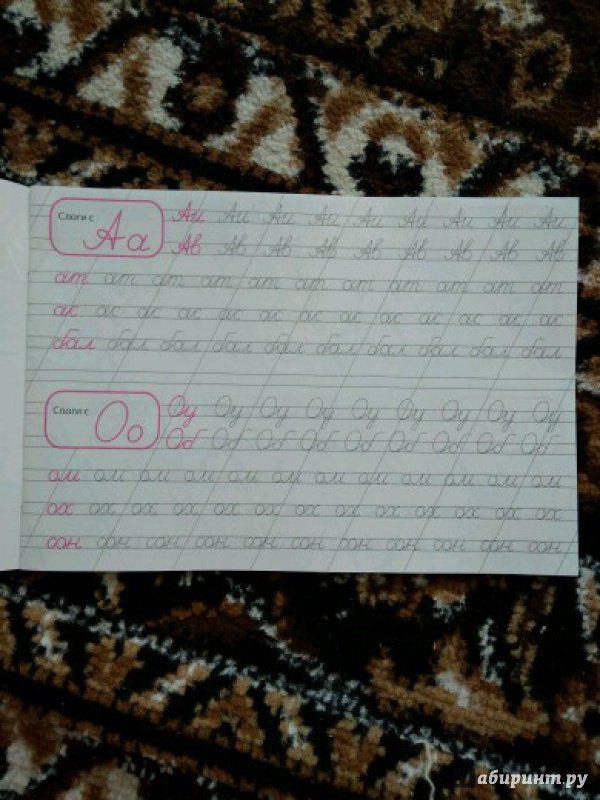 Слоги с Аа Аи Аи Аи Аи Аи Аи Аи Аи Аи
Ав Ав Ав Ав Ав Ав Ав Ав Ав
ат ат ат ат ат ат ат ат ат ат ат
ас ас ас ас ас ас ас ас ас ас ас ас ас
бал бал бал бал бал бал бал бал бал бал
Слоги с Оо Оу Оу Оу Оу Оу Оу Оу Оу Оу
Об Об Об Об Об Об Об Об Об
ом ом ом ом ом ом ом ом ом ом ом ом
ох ох ох ох ох ох ох ох ох ох ох ох ох
сон сон сон сон сон сон сон сон сон сон сон
абиринт.ру